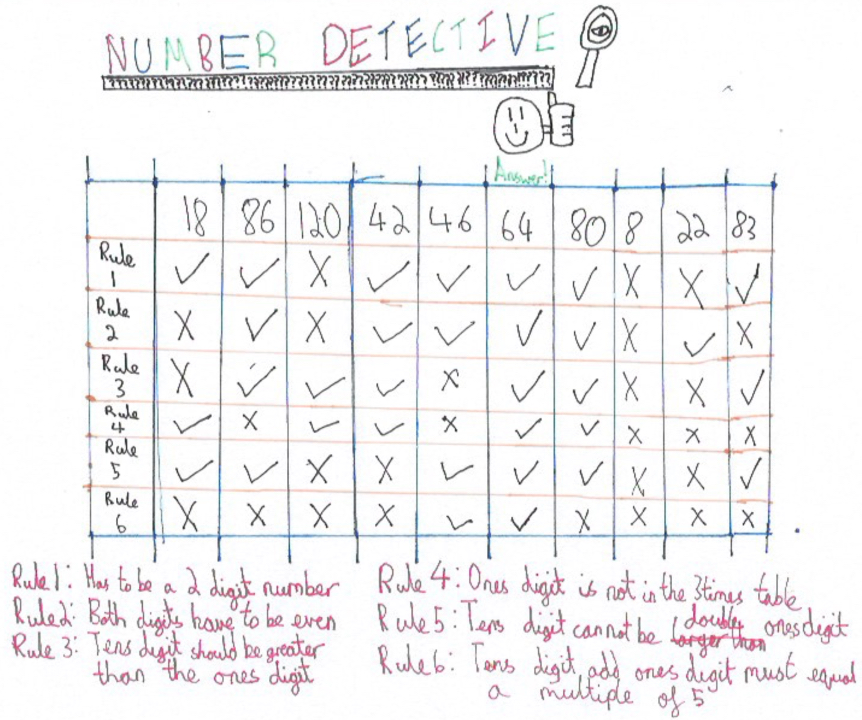 NUMBER DETECTIVE
Answer!
18 86 120 42 46 64 80 8 22 83
Rule 1 ✓ ✓ X ✓ ✓ ✓ ✓ X X ✓
Rule 2 X ✓ X ✓ ✓ ✓ ✓ X ✓ X
Rule 3 X ✓ ✓ ✓ X ✓ ✓ X X ✓
Rule 4 ✓ X ✓ ✓ X ✓ ✓ X X X
Rule 5 ✓ ✓ X X ✓ ✓ ✓ X X ✓
Rule 6 X X X X ✓ ✓ X X X X
Rule 1: Has to be a 2 digit number
Rule 2: Both digits have to be even
Rule 3: Tens digit should be greater
than the ones digit
Rule 4: Ones digit is not in the 3times table
Rule 5: Tens digit cannot be double ones digit
Rule 6: Tens digit add ones digit must equal
a multiple of 5